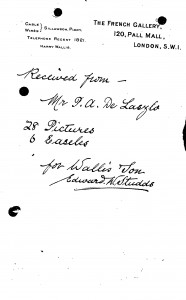 CABLE
WIRES } DILLANSON PICCY. LONDON.
TELEPHONE REGENT 1821.
HARRY WALLIS.
THE FRENCH GALLERY,
120, PALL MALL,
LONDON, S.W.1.
Received from —
Mr P. A. De Laszlo
28 Pictures
6 Easeles
for Wallis & Son
Edward. H. Studds